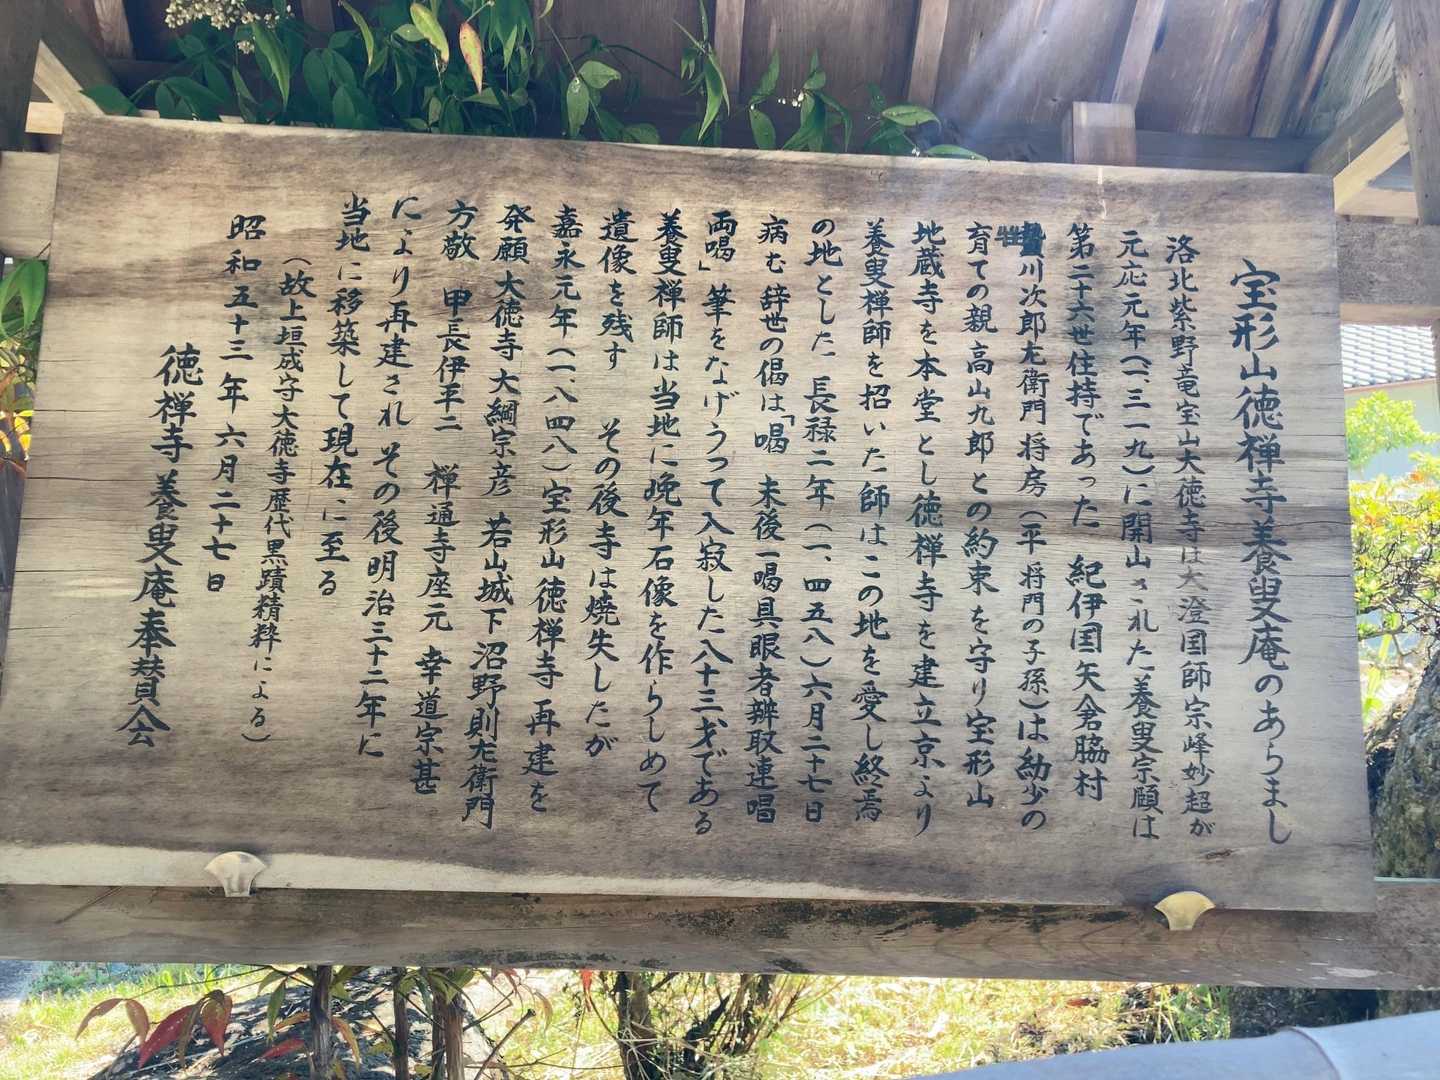 宝形山徳禅寺養叟庵のあらまし
洛北紫野竜宝山大徳寺は大澄国師宗峰妙超が
元応元年(一、三一九)に開山された養叟宗頤は
第二十六世住持であった 紀伊国矢倉脇村
牲川次郎左衛門将房(平将門の子孫)は幼少の
育ての親高山九郎との約束を守り宝形山
地蔵寺を本堂とし徳禅寺を建立京より
養叟禅師を招いた師はこの地を愛し終焉
の地とした 長禄二年(一、四五八)六月二十七日
病む辞世の偈は「喝 末後一喝具眼者辨取連唱
両喝」筆をなげうって入寂した八十三才である
養叟禅師は当地に晩年石像を作らしめて
遺像を残す その後寺は焼失したが
嘉永元年(一、八四八)宝形山徳禅寺再建を
発願 大徳寺大綱宗彦 若山城下沼野則左衛門
方敬 甲長伊平二 禅通寺座元 幸道宗甚
により再建され その後明治三十二年に
当地に移築して現在に至る
(故上垣成守大徳寺歴代黒蹟精粋による)
昭和五十三年六月二十七日
徳禅寺養叟庵奉賛会